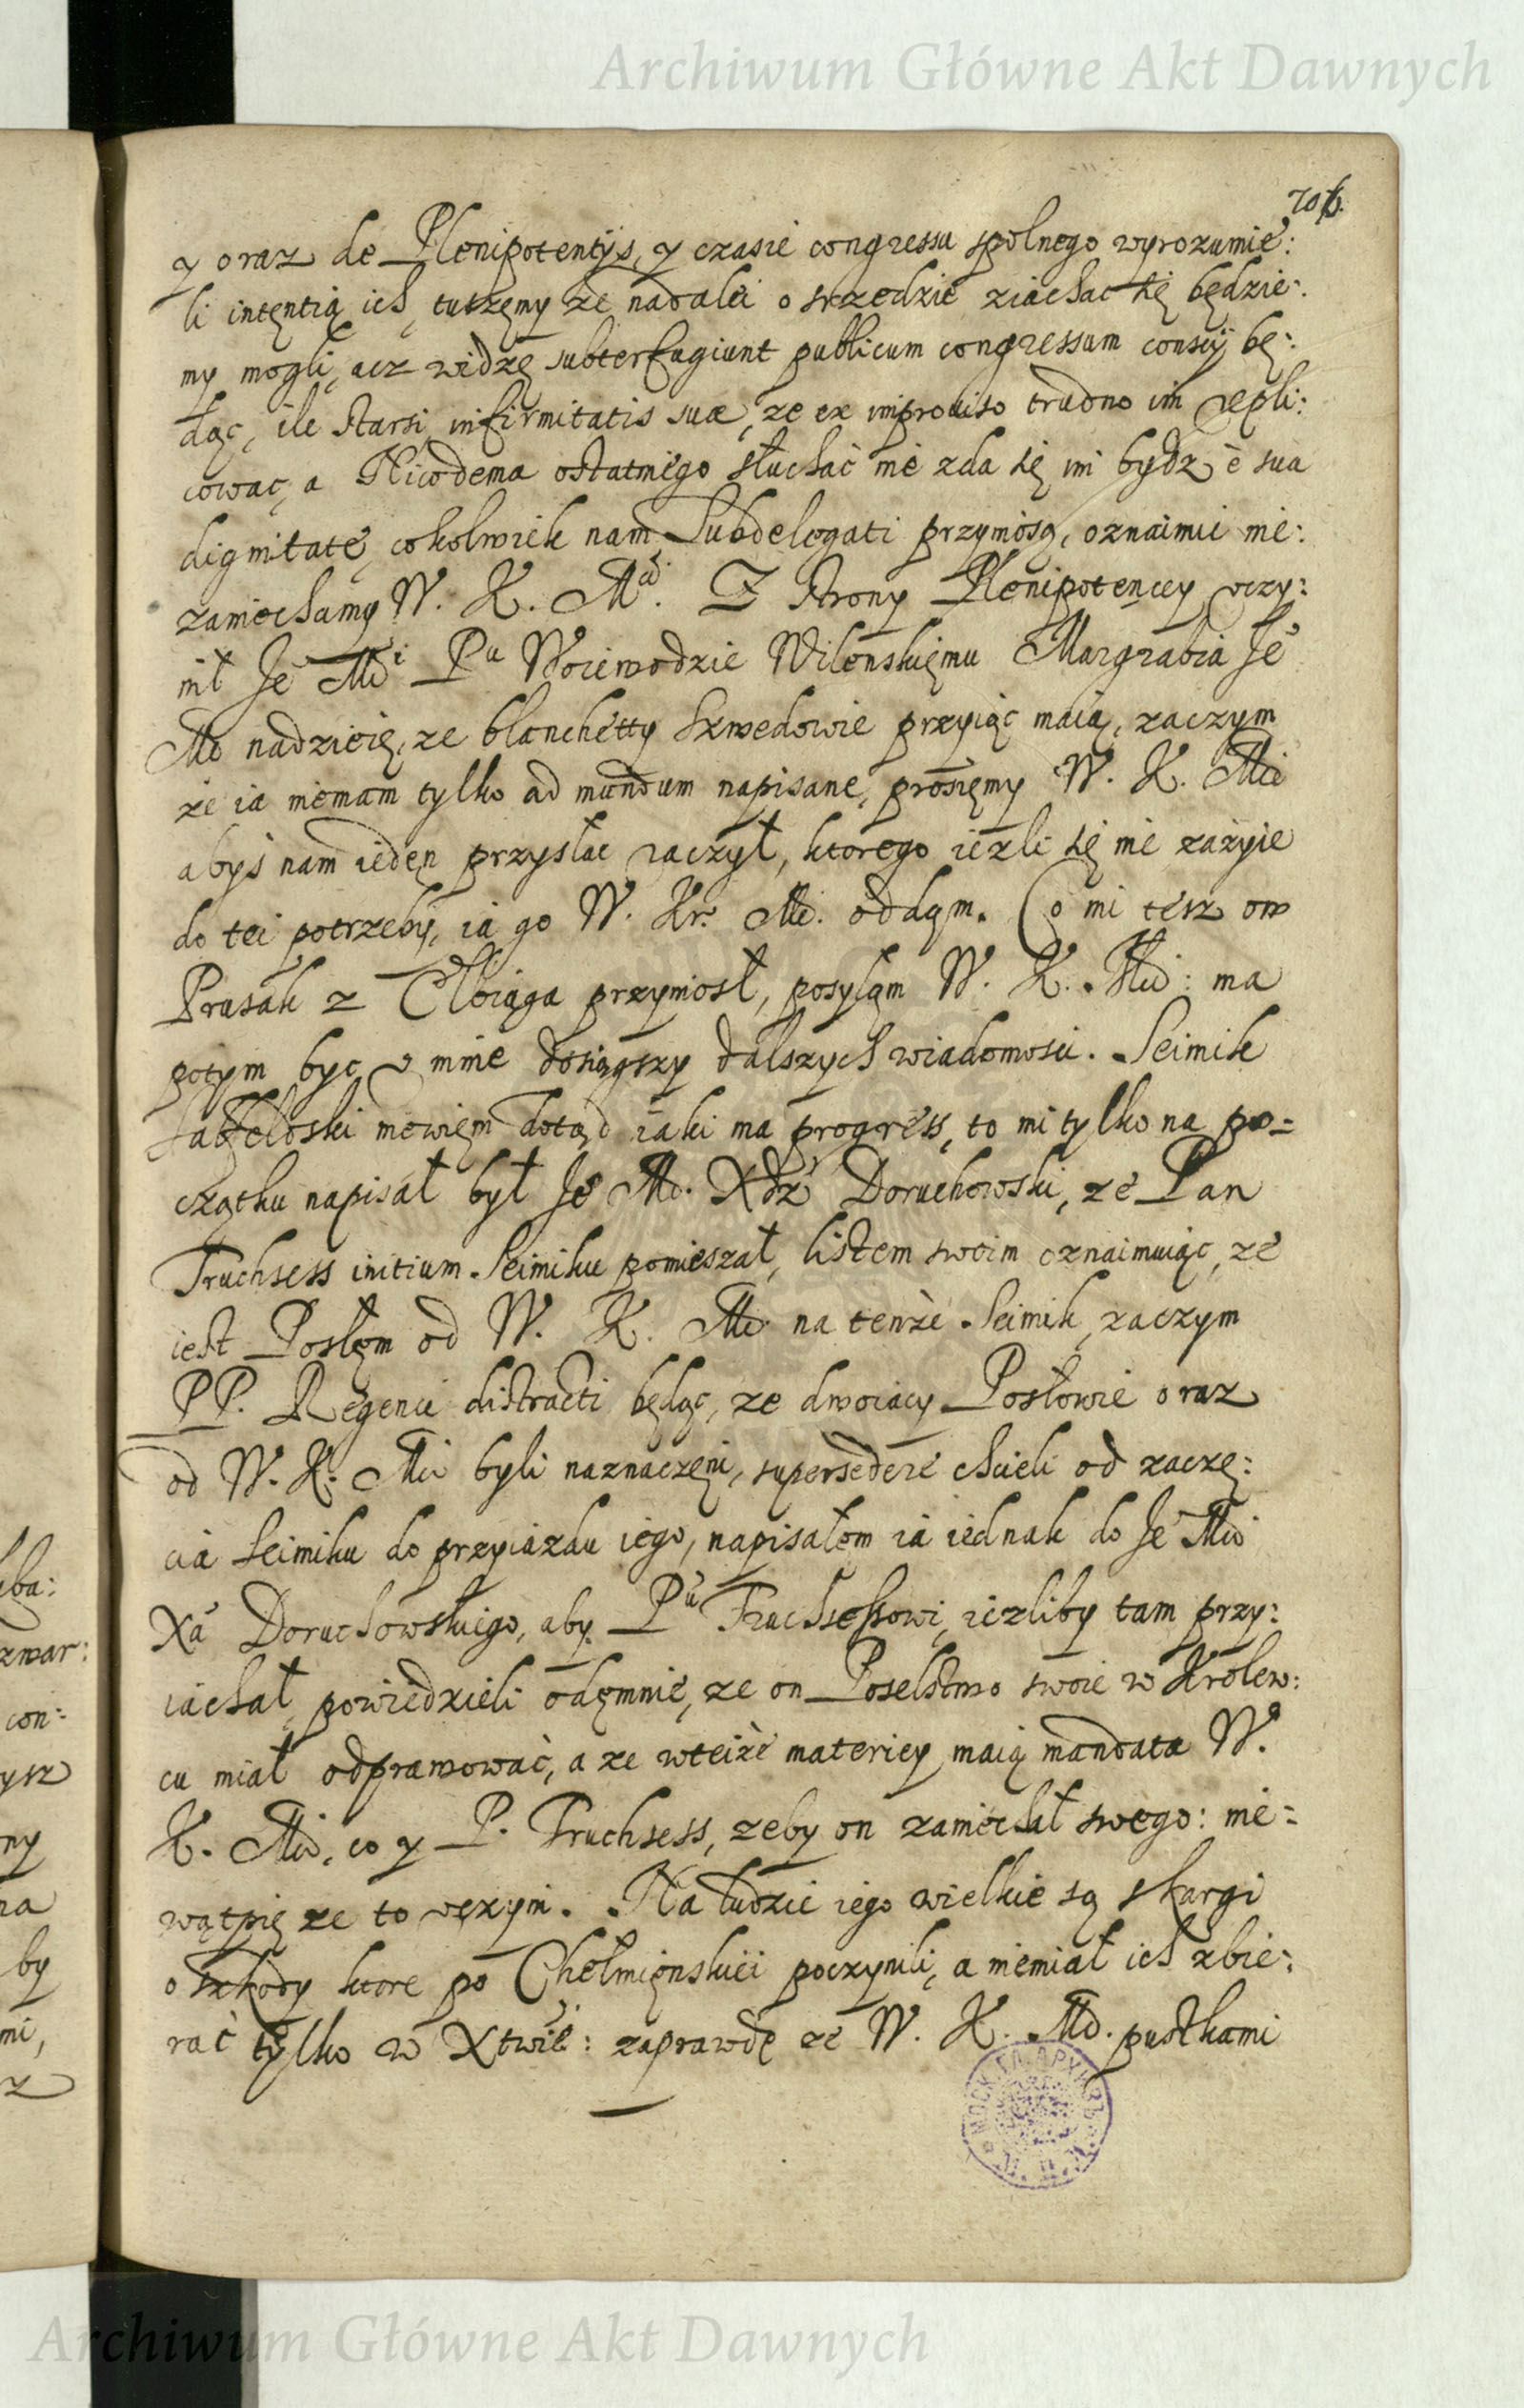 Archiwum Główne Akt Dawnych
y oraz de Plenipotentijs, y czasie congressu spolnego wyrozumie:
li intentią ich, tuszemy ze nadalei o srzedzie ziachac się będzie:
my mogli, acz widzę subterfugiunt publicum congressum conscij bę:
dąc, ile starsi, infirmitatis suæ, ze ex improuiso trudno im repli:
cowac, a Nicodema ostatniego słuchać nie zda się im bydz è sua
dignitate, cokolwiek nam Subdelegati przyniosą, oznaimic nie:
zaniechamy W. K. Mći. Z strony Plenipotencey vczy:
nił Je Mći Pu Woiewodzie Wilenskiemu Margrabia Je
Mć nadzieię, ze blanchetty Szwedowie przyiąc maią, zaczym
że ia niemam tylko ad mundum napisane, prosięmy W. K. Mći
abyś nam ieden przysłac raczył, ktorego iezli się nie zażyie
do tei potrzeby, ia go W. Kr. Mći. oddam. Co mi tesz ow
Prusak z Elbiąga przyniosł, posyłąm W. K. Mći: ma
potym byc v mnie dosiągszy dalszych wiadomosci. Seimik
niewiem dotąd iaki ma progress, to mi tylko na po=
czątku napisał był Je Mć. Xdz Doruchowski, ze Pan
Truchsess initium Seimiku pomieszał, listem swoim oznaimuiąc, ze
iest Posłem od W. K. Mći na tenże Seimik, zaczym
PP. Regenci distracti będąc, ze dwoiacy Posłowie oraz
od W. K. Mći byli naznaczeni, supersedere chcieli od zaczę:
cia Seimiku do przyiazdu iego, napisałem ia iednak do Je Mći
Xa Doruchowskiego, aby Pu Truchsessowi, iezliby tam przy:
iachał, powiedzieli odemnie, ze on Poselstwo swoie w Krolew:
cu miał odprawować, a ze wteize materiey maią mandata W.
K. Mći, co y P. Truchsess, zeby on zaniechał swego: nie=
wątpię ze to vczyni. Na ludzie iego wielkie są skargi
o szkody ktore po Chełmienskiei poczynili, a niemiał ich zbie:
rać tylko w Xtwie: zaprawdę ze W. K. Mć. pustkami
Archiwum Główne Akt Dawnych